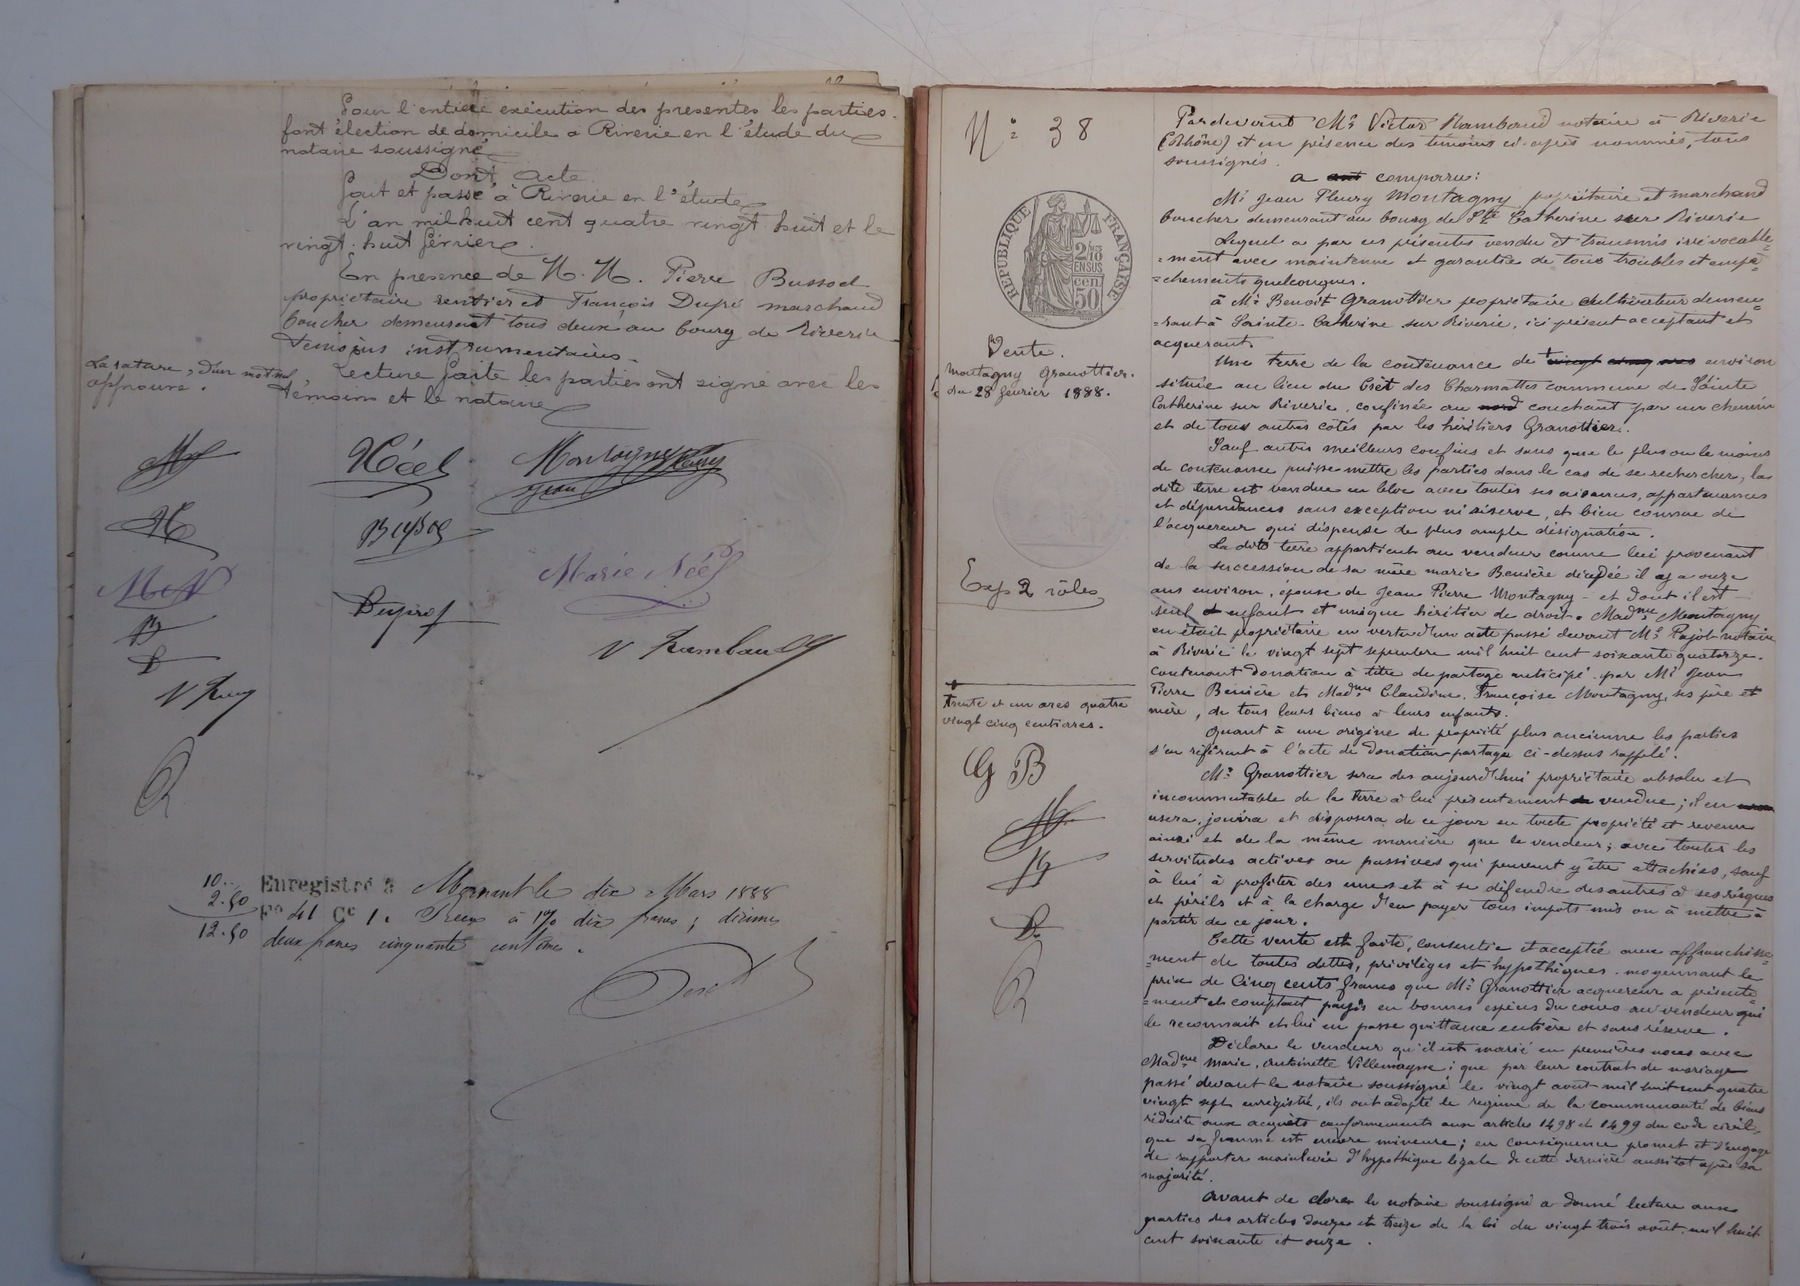 Pour l'entière exécution des presentes les parties
font élection de domicile a Riverie en l'étude du
notaire soussigné
Dont Acte.
Fait et passé à Riverie en l'étude
L'an mil huit cent quatre vingt huit et le
vingt-huit février.
En presence de M. M. Pierre Bussod
propriétaire rentier et François Dupré marchand
boucher demeurant tous deux au bourg de Riverie
témoins instrumentaires.
La rature d'un mot nul
approuvé.
Lecture faite les parties ont signé avec les
témoins et le notaire
Noël
Montagny Fleury
Jean
Marie Noël
V Rambaud
10..
2.50
12.50
Enregistré à Mornant le dix Mars 1888
F° 41 C° 1. Reçu à 1% dix francs ; décimes
deux francs cinquante centimes.
N° 38
RÉPUBLIQUE FRANÇAISE
2/10
EN SUS
50 cen
Vente.
Montagny Granottier.
du 28 février 1888.
Exp 2 rôles
trente et un ares quatre
vingt cinq centiares.
G B
Pardevant Me Victor Rambaud notaire à Riverie
(Rhône) et en présence des témoins ci-après nommés, tous
soussignés.
a ont comparu:
Mr Jean Fleury Montagny propriétaire et marchand
boucher demeurant au bourg de Ste Catherine sur Riverie
Lequel a par ces présentes vendu et transmis irrévocable=
=ment avec maintenue et garantie de tous troubles et empê=
=chements quelconques.
à Mr Benoît Granottier propriétaire cultivateur demeu=
=rant à Sainte-Catherine sur Riverie, ici présent acceptant et
acquerant
Une terre de la contenance de vingt cinq ares environ
située au lieu du Crêt des Charmattes commune de Sainte
Catherine sur Riverie, confinée au nord couchant par un chemin
et de tous autres côtés par les héritiers Granottier.
Sauf autres meilleurs confins et sans que le plus ou le moins
de contenance puisse mettre les parties dans le cas de se rechercher, la
dite terre est vendue en bloc avec toutes ses aisances, appartenances
et dépendances sans exception ni réserve, et bien connue de
l'acquereur qui dispense de plus ample désignation.
La dite terre appartient au vendeur comme lui provenant
de la succession de sa mère marie Benière décédée il y a onze
ans environ, épouse de Jean Pierre Montagny - et dont il est
seul enfant et unique héritier de droit. Madme Montagny
en était propriétaire en vertu d'un acte passé devant Me Pajot notaire
à Riverie le vingt sept septembre mil huit cent soixante quatorze.
contenant donation à titre de partage anticipé par Mr Jean
Pierre Benière et Madme Claudine, Françoise Montagny, ses père et
mère, de tous leurs biens à leurs enfants.
Quant à une origine de propriété plus ancienne les parties
s'en réfèrent à l'acte de donation-partage ci-dessus rappelé.
Mr Granottier sera dès aujourd'hui propriétaire absolu et
incommutable de la terre à lui présentement vendue; il en
usera, jouira et disposera de ce jour en toute propriété et revenu
ainsi et de la même manière que le vendeur; avec toutes les
servitudes actives ou passives qui peuvent y être attachées, sauf
à lui à profiter des unes et à se défendre des autres à ses risques
et périls et à la charge d'en payer tous impots mis ou à mettre à
partir de ce jour.
Cette vente est faite, consentie et acceptée avec affranchisse=
=ment de toutes dettes, privilèges et hypothèques. moyennant le
prix de Cinq cents francs que Mr Granottier acquereur a présente=
=ment et comptant payés en bonnes espèces du cours au vendeur qui
le reconnait et lui en passe quittance entière et sans réserve.
Déclare le vendeur qu'il est marié en premières noces avec
Madme Marie, Antoinette Villemagne; que par leur contrat de mariage
passé devant le notaire soussigné le vingt août mil huit cent quatre
vingt sept enregistré, ils ont adopté le regime de la communauté de biens
réduite aux acquêts conformement aux articles 1498 et 1499 du code civil,
que sa femme est encore mineure; en conséquence promet et s'engage
de rapporter mainlevée d'hypothèque légale de cette dernière aussitot après sa
majorité.
Avant de clore le notaire soussigné a donné lecture aux
parties des articles douze et treize de la loi du vingt trois août mil huit
cent soixante et onze.